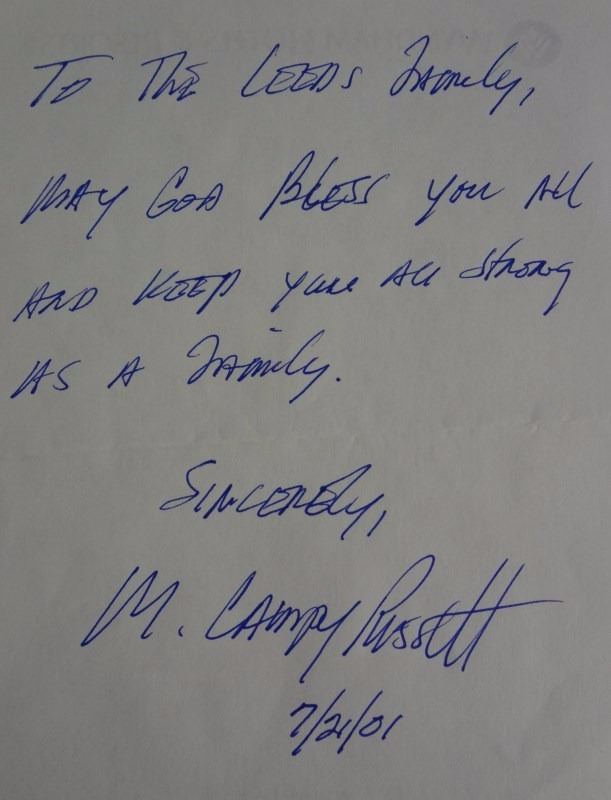 To The Leeds Family,
May God Bless you All
And Keep you All Strong
As A Family.
Sincerely,
M. Campy Russell
7/21/01